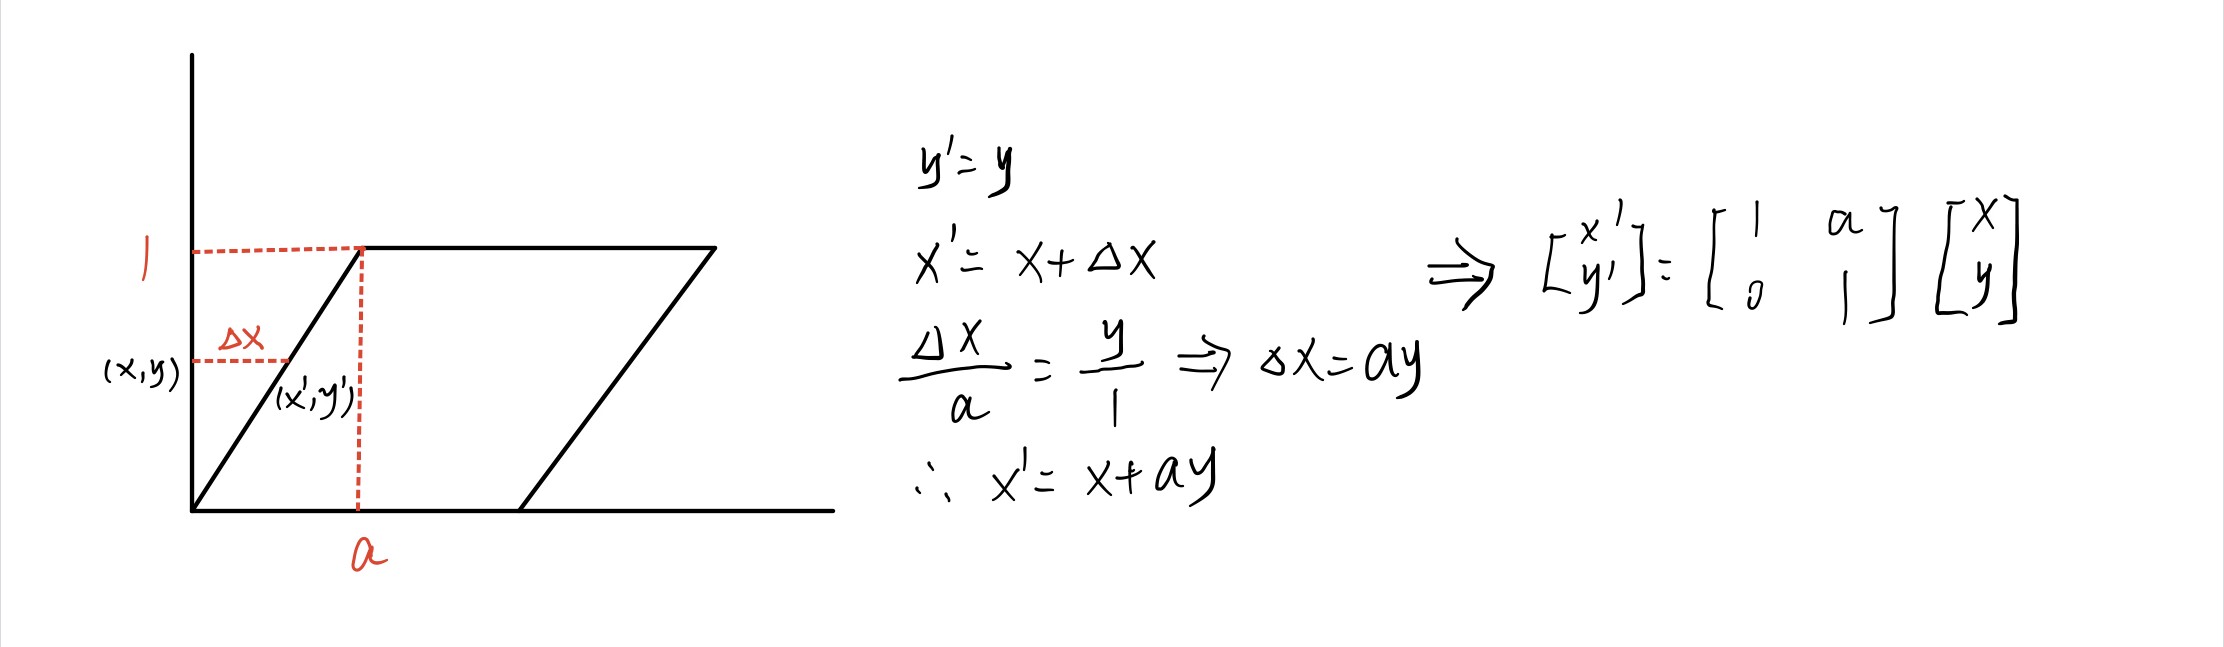 1
Δx
(x,y)
(x',y')
a
y' = y
x' = x + Δx
Δx/a = y/1 ⇒ Δx = ay
∴ x' = x + ay
⇒ [x' y'] = [1 a 0 1] [x y]